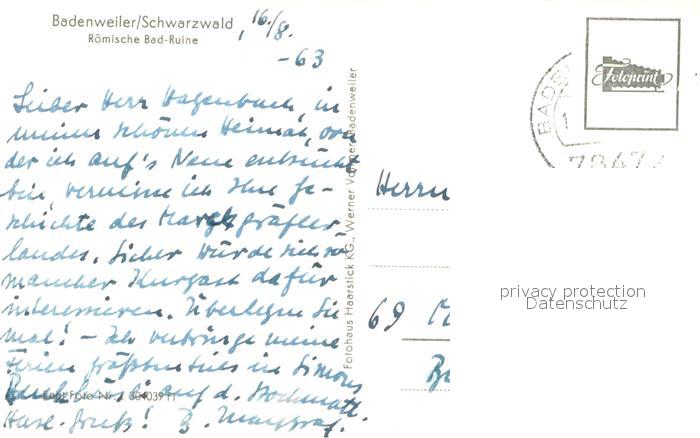 Badenweiler/Schwarzwald
Römische Bad-Ruine
, 16./8.
-63
Lieber Herr Hagenbuch, in
meiner schönen Heimat, von
der ich auf's Neue entzückt
bin, vermisse ich Ihre Ge-
schichte des Markgräfler
landes. Sicher würde sich so
mancher Kurgast dafür
interessieren. Überlegen Sie
mal! - Ich verbringe meine
Ferien größtenteils in Simons
auf d.
Herzl. Gruß! B.
Fotohaus Haarstick KG., Werner Badenweiler
Herrn
69
BADE
1
7847
Fotoprint
privacy protection
Datenschutz